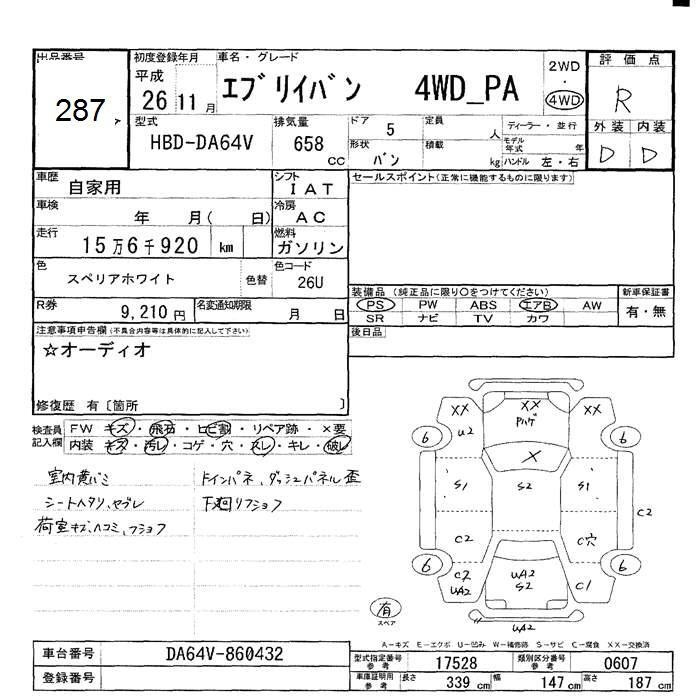 出品番号 初度登録年月 車名・グレード 2WD 評価点
287 平成 26 11月 エブリイバン 4WD_PA ・ 4WD R
型式 HBD-DA64V 排気量 658 CC ドア 5 定員 人 ディーラー・並行 外装 内装
形状 バン 積載 kg モデル年式 年 ハンドル 左・右 D D
車歴 自家用 シフト IAT セールスポイント(正常に機能するものに限ります)
車検 年 月( 日) 冷房 AC
走行 15万6千920 km 燃料 ガソリン
色 スペリアホワイト 色替 色コード 26U
装備品 (純正品に限り○をつけてください) 新車保証書
PS PW ABS エアB AW 有・無
R券 9,210円 名変通知期限 月 日 SR ナビ TV カワ
注意事項申告欄(不具合内容等は具体的に記入して下さい) 後日品
☆オーディオ
修復歴 有〔箇所 〕
検査員記入欄 FW キズ・飛石・ヒビ割・リペア跡・×要
内装 キズ・汚レ・コゲ・穴・スレ・キレ・破レ
室内黄バミ ドインパネ、ダッシュパネル歪
シートヘタリ、ヤブレ 下廻リフショフ
荷室キズ、ヘコミ、フショフ
XX XX XX
U2 Pハゲ
6 6
X
S1 S2 S1
C2
C2 C穴
6 6
C2 UA2 UA2 S2 C1
有 スペア
UA2
A-キズ E-エクボ U-凹ミ W-補修跡 S-サビ C-腐食 XX-交換済
車台番号 DA64V-860432 型式指定番号 参考 17528 類別区分番号 参考 0607
登録番号 車庫証明用 参考 長さ 339 cm 幅 147 cm 高さ 187 cm